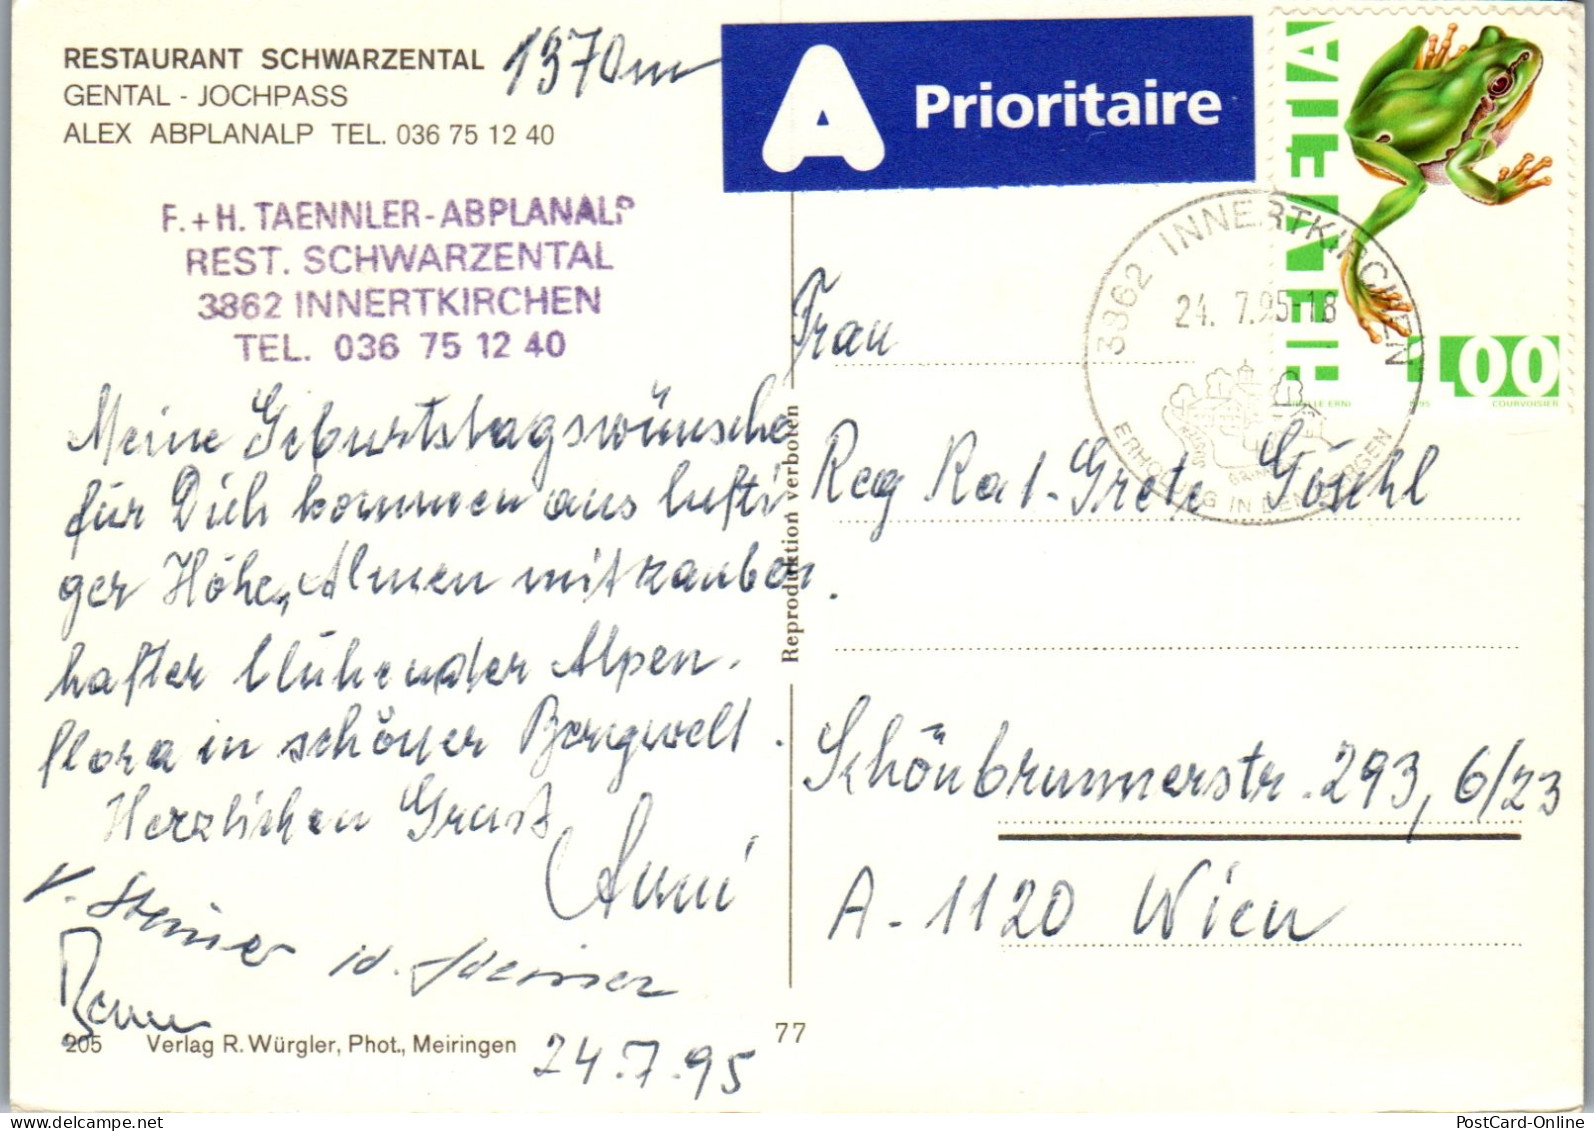 RESTAURANT SCHWARZENTAL 1370m
GENTAL - JOCHPASS
ALEX ABPLANALP TEL. 036 75 12 40
F. + H. TAENNLER-ABPLANALP
REST. SCHWARZENTAL
3862 INNERTKIRCHEN
TEL. 036 75 12 40
Meine Geburtstagswünsche
für Dich kommen aus lufti
ger Höhe, Almen mit zauber
hafter blühender Alpen-
flora in schöner Bergwelt.
Herzlichen Gruss
Anni
205 Verlag R. Würgler, Phot., Meiringen
24.7.95
Reproduktion verboten
77
A Prioritaire
HELVETIA
1.00
COURVOISIER
3862 INNERTKIRCHEN
24. 7.95-18
ERHOLUNG IN DEN BERGEN
Frau
Reg Rat. Grete Göschl
Schönbrunnerstr. 293, 6/23
A-1120 Wien
PostCard-Online